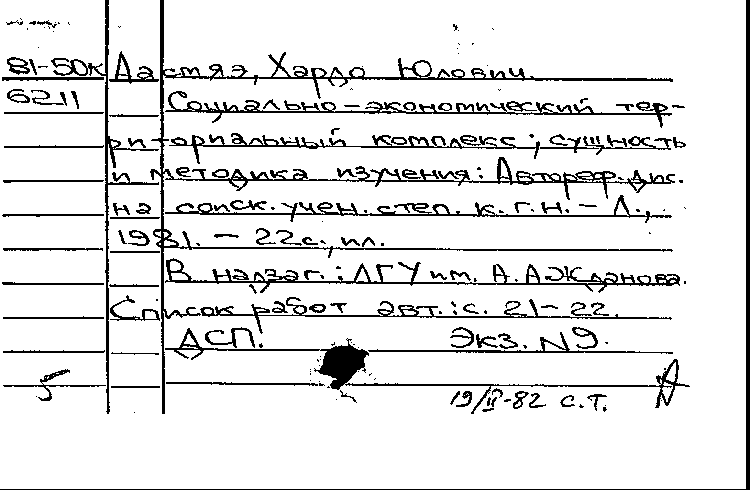 81-50к Дастяэ, Хардо Юлович.
6211 Социально-экономический тер-
риториальный комплекс; сущность
и методика изучения: Автореф. дис.
на соиск. учен. степ. к. г. н. - Л.,
1981. - 22с., ил.
В надзаг.: ЛГУ им. А. А. Жданова.
Список работ авт.: с. 21-22.
ДСП. Экз. N9.
5
19/II-82 с.т.